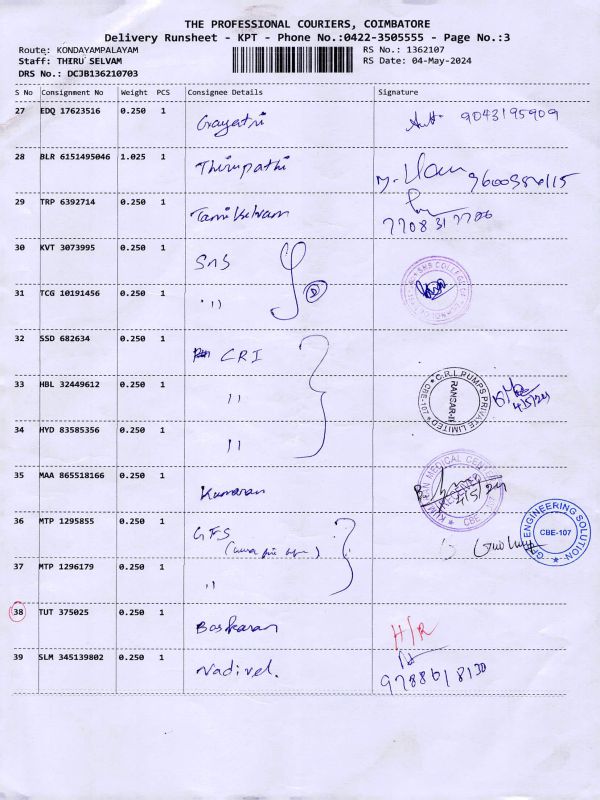 THE PROFESSIONAL COURIERS, COIMBATORE
Delivery Runsheet - KPT - Phone No.:0422-3505555 - Page No.:3
Route: KONDAYAMPALAYAM
Staff: THIRU SELVAM
DRS No.: DCJB136210703
RS No.: 1362107
RS Date: 04-May-2024
S No Consignment No Weight PCS Consignee Details Signature
27 EDQ 17623516 0.250 1 Gayatri 9043195909
28 BLR 6151495046 1.025 1 Thirupathi
29 TRP 6392714 0.250 1 Tamilselvam
30 KVT 3073995 0.250 1 SNS
31 TCG 10191456 0.250 1 "
32 SSD 682634 0.250 1 CRI
33 HBL 32449612 0.250 1 " C.R.I. PUMPS PRIVATE LIMITED CBE-107 4/5/24
34 HYD 83585356 0.250 1 "
35 MAA 865518166 0.250 1 Kumaran MEDICAL CENTER CBE 4/5/24
36 MTP 1295855 0.250 1 GFS ENGINEERING SOLUTION CBE-107
37 MTP 1296179 0.250 1 "
38 TUT 375025 0.250 1 Baskaran H/R
39 SLM 345139802 0.250 1 Vadivel. 9788618130